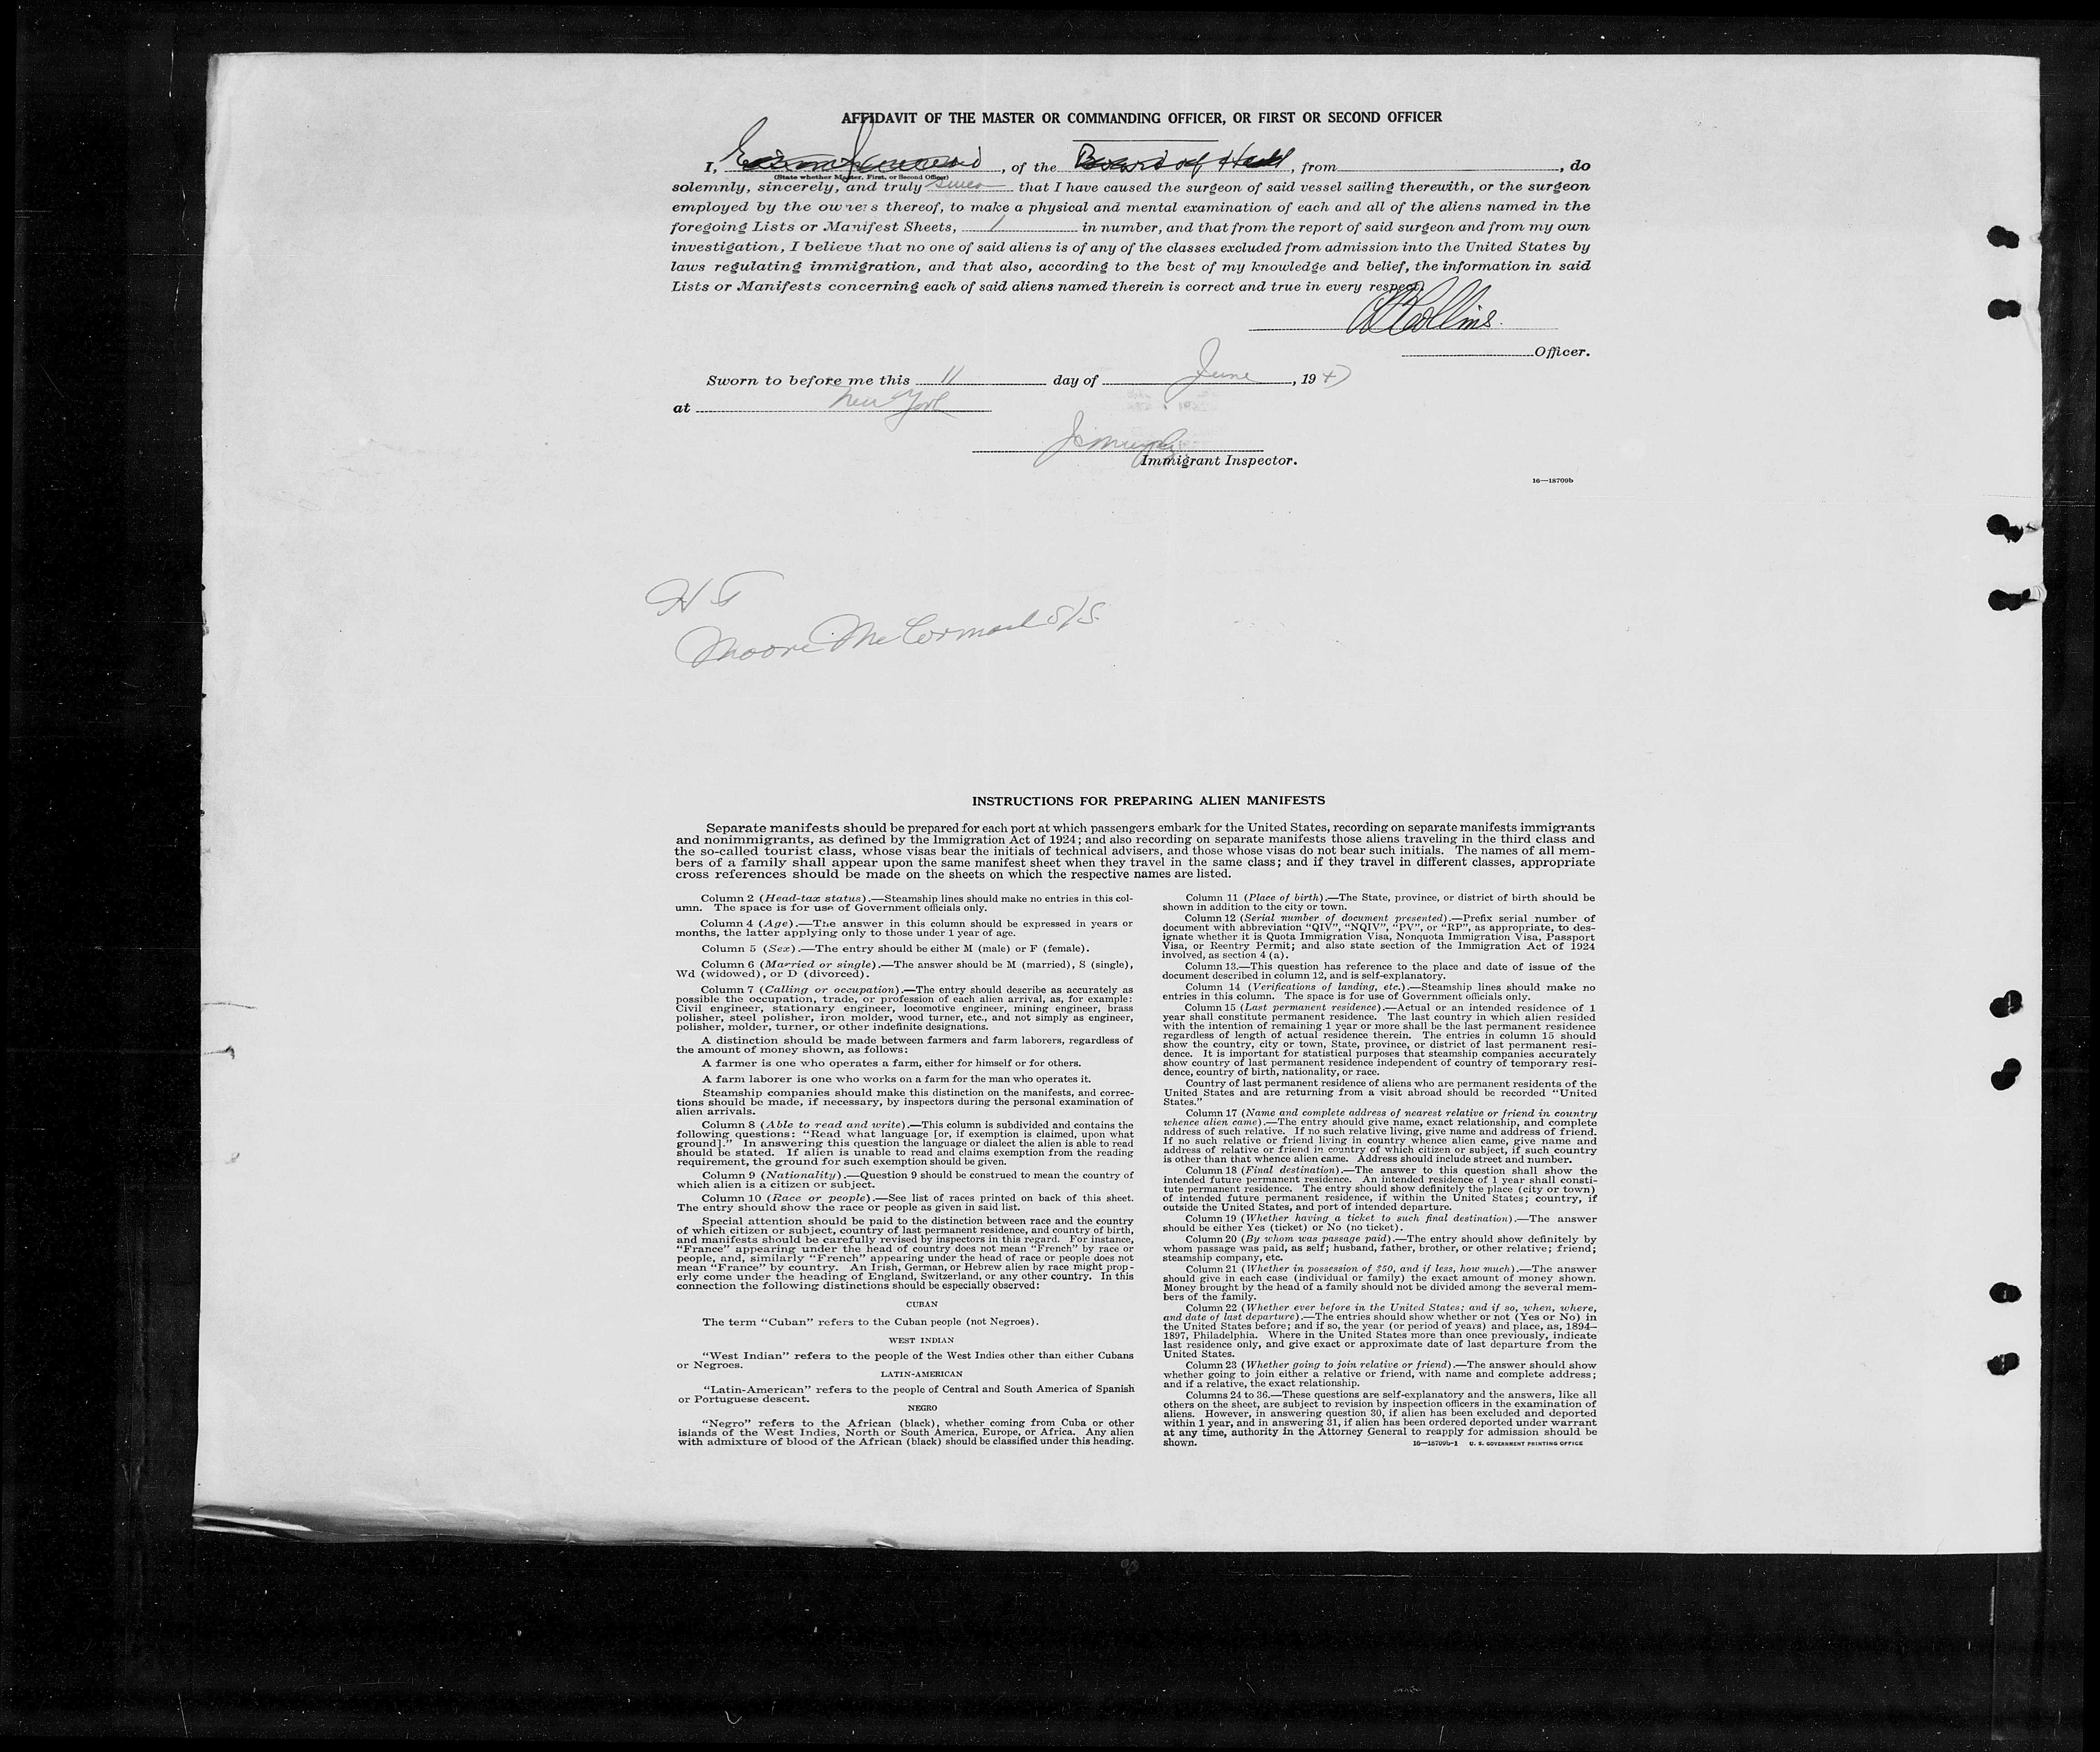 AFFIDAVIT OF THE MASTER OR COMMANDING OFFICER, OR FIRST OR SECOND OFFICER
I, , of the Board of , from , do
(State whether Master, First, or Second Officer)
solemnly, sincerely, and truly swear that I have caused the surgeon of said vessel sailing therewith, or the surgeon
employed by the owners thereof, to make a physical and mental examination of each and all of the aliens named in the
foregoing Lists or Manifest Sheets, 1 in number, and that from the report of said surgeon and from my own
investigation, I believe that no one of said aliens is of any of the classes excluded from admission into the United States by
laws regulating immigration, and that also, according to the best of my knowledge and belief, the information in said
Lists or Manifests concerning each of said aliens named therein is correct and true in every respect.
Collins
Officer.
Sworn to before me this 11 day of June, 1947
at New York
Immigrant Inspector.
16—18709b
Moore McCormack S/S
INSTRUCTIONS FOR PREPARING ALIEN MANIFESTS
Separate manifests should be prepared for each port at which passengers embark for the United States, recording on separate manifests immigrants
and nonimmigrants, as defined by the Immigration Act of 1924; and also recording on separate manifests those aliens traveling in the third class and
the so-called tourist class, whose visas bear the initials of technical advisers, and those whose visas do not bear such initials. The names of all mem-
bers of a family shall appear upon the same manifest sheet when they travel in the same class; and if they travel in different classes, appropriate
cross references should be made on the sheets on which the respective names are listed.
Column 2 (Head-tax status).—Steamship lines should make no entries in this col-
umn. The space is for use of Government officials only.
Column 4 (Age).—The answer in this column should be expressed in years or
months, the latter applying only to those under 1 year of age.
Column 5 (Sex).—The entry should be either M (male) or F (female).
Column 6 (Married or single).—The answer should be M (married), S (single),
Wd (widowed), or D (divorced).
Column 7 (Calling or occupation).—The entry should describe as accurately as
possible the occupation, trade, or profession of each alien arrival, as, for example:
Civil engineer, stationary engineer, locomotive engineer, mining engineer, brass
polisher, steel polisher, iron molder, wood turner, etc., and not simply as engineer,
polisher, molder, turner, or other indefinite designations.
A distinction should be made between farmers and farm laborers, regardless of
the amount of money shown, as follows:
A farmer is one who operates a farm, either for himself or for others.
A farm laborer is one who works on a farm for the man who operates it.
Steamship companies should make this distinction on the manifests, and correc-
tions should be made, if necessary, by inspectors during the personal examination of
alien arrivals.
Column 8 (Able to read and write).—This column is subdivided and contains the
following questions: "Read what language [or, if exemption is claimed, upon what
ground]." In answering this question the language or dialect the alien is able to read
should be stated. If alien is unable to read and claims exemption from the reading
requirement, the ground for such exemption should be given.
Column 9 (Nationality).—Question 9 should be construed to mean the country of
which alien is a citizen or subject.
Column 10 (Race or people).—See list of races printed on back of this sheet.
The entry should show the race or people as given in said list.
Special attention should be paid to the distinction between race and the country
of which citizen or subject, country of last permanent residence, and country of birth,
and manifests should be carefully revised by inspectors in this regard. For instance,
"France" appearing under the head of country does not mean "French" by race or
people, and, similarly "French" appearing under the head of race or people does not
mean "France" by country. An Irish, German, or Hebrew alien by race might prop-
erly come under the heading of England, Switzerland, or any other country. In this
connection the following distinctions should be especially observed:
CUBAN
The term "Cuban" refers to the Cuban people (not Negroes).
WEST INDIAN
"West Indian" refers to the people of the West Indies other than either Cubans
or Negroes.
LATIN-AMERICAN
"Latin-American" refers to the people of Central and South America of Spanish
or Portuguese descent.
NEGRO
"Negro" refers to the African (black), whether coming from Cuba or other
islands of the West Indies, North or South America, Europe, or Africa. Any alien
with admixture of blood of the African (black) should be classified under this heading.
Column 11 (Place of birth).—The State, province, or district of birth should be
shown in addition to the city or town.
Column 12 (Serial number of document presented).—Prefix serial number of
document with abbreviation "QIV", "NQIV", "PV", or "RP", as appropriate, to des-
ignate whether it is Quota Immigration Visa, Nonquota Immigration Visa, Passport
Visa, or Reentry Permit; and also state section of the Immigration Act of 1924
involved, as section 4 (a).
Column 13.—This question has reference to the place and date of issue of the
document described in column 12, and is self-explanatory.
Column 14 (Verifications of landing, etc.).—Steamship lines should make no
entries in this column. The space is for use of Government officials only.
Column 15 (Last permanent residence).—Actual or an intended residence of 1
year shall constitute permanent residence. The last country in which alien resided
with the intention of remaining 1 year or more shall be the last permanent residence
regardless of length of actual residence therein. The entries in column 15 should
show the country, city or town, State, province, or district of last permanent resi-
dence. It is important for statistical purposes that steamship companies accurately
show country of last permanent residence independent of country of temporary resi-
dence, country of birth, nationality, or race.
Country of last permanent residence of aliens who are permanent residents of the
United States and are returning from a visit abroad should be recorded "United
States."
Column 17 (Name and complete address of nearest relative or friend in country
whence alien came).—The entry should give name, exact relationship, and complete
address of such relative. If no such relative living, give name and address of friend.
If no such relative or friend living in country whence alien came, give name and
address of relative or friend in country of which citizen or subject, if such country
is other than that whence alien came. Address should include street and number.
Column 18 (Final destination).—The answer to this question shall show the
intended future permanent residence. An intended residence of 1 year shall consti-
tute permanent residence. The entry should show definitely the place (city or town)
of intended future permanent residence, if within the United States; country, if
outside the United States, and port of intended departure.
Column 19 (Whether having a ticket to such final destination).—The answer
should be either Yes (ticket) or No (no ticket).
Column 20 (By whom was passage paid).—The entry should show definitely by
whom passage was paid, as self; husband, father, brother, or other relative; friend;
steamship company, etc.
Column 21 (Whether in possession of $50, and if less, how much).—The answer
should give in each case (individual or family) the exact amount of money shown.
Money brought by the head of a family should not be divided among the several mem-
bers of the family.
Column 22 (Whether ever before in the United States; and if so, when, where,
and date of last departure).—The entries should show whether or not (Yes or No) in
the United States before; and if so, the year (or period of years) and place, as, 1894–
1897, Philadelphia. Where in the United States more than once previously, indicate
last residence only, and give exact or approximate date of last departure from the
United States.
Column 23 (Whether going to join relative or friend).—The answer should show
whether going to join either a relative or friend, with name and complete address;
and if a relative, the exact relationship.
Columns 24 to 36.—These questions are self-explanatory and the answers, like all
others on the sheet, are subject to revision by inspection officers in the examination of
aliens. However, in answering question 30, if alien has been excluded and deported
within 1 year, and in answering 31, if alien has been ordered deported under warrant
at any time, authority in the Attorney General to reapply for admission should be
shown.
16—18709b-1 U. S. GOVERNMENT PRINTING OFFICE